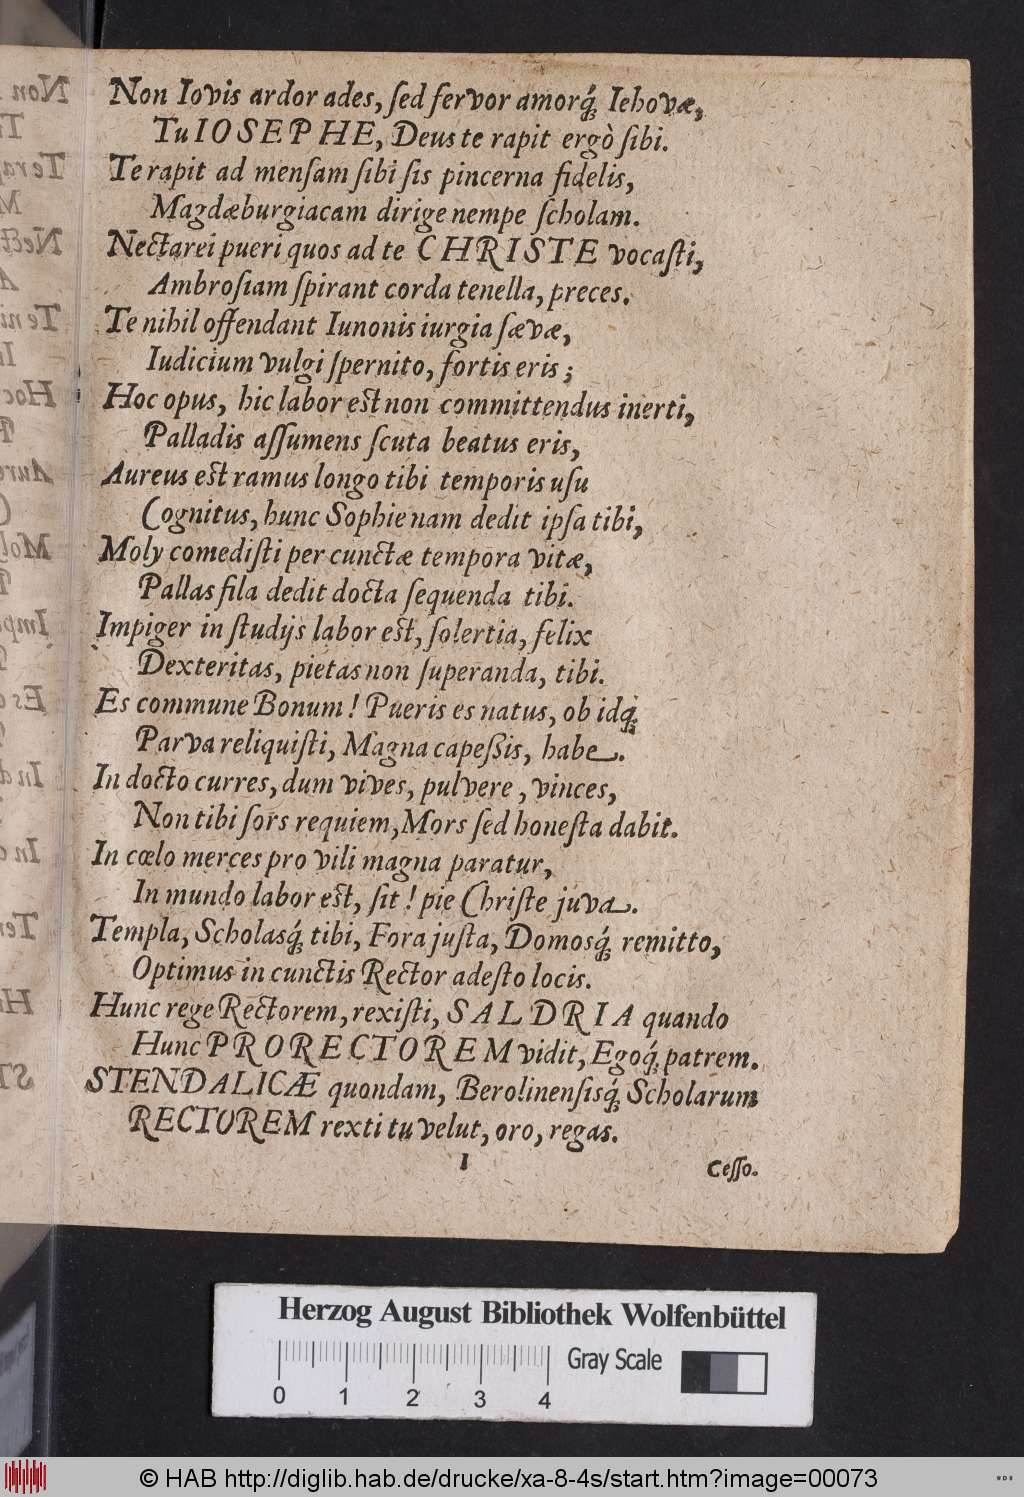 Non Iovis ardor ades, ſed fervor amorq́; Iehovæ,
Tu IOSEPHE, Deus te rapit ergò ſibi.
Te rapit ad menſam ſibi ſis pincerna fidelis,
Magdæburgiacam dirige nempe ſcholam.
Nectarei pueri quos ad te CHRISTE vocaſti,
Ambroſiam ſpirant corda tenella, preces.
Te nihil offendant Iunonis iurgia ſævæ,
Iudicium vulgi ſpernito, fortis eris;
Hoc opus, hic labor eſt non committendus inerti,
Palladis aſſumens ſcuta beatus eris,
Aureus eſt ramus longo tibi temporis uſu
Cognitus, hunc Sophie nam dedit ipſa tibi,
Moly comediſti per cunctæ tempora vitæ,
Pallas fila dedit docta ſequenda tibi.
Impiger in ſtudijs labor eſt, ſolertia, felix
Dexteritas, pietas non ſuperanda, tibi.
Es commune Bonum! Pueris es natus, ob idq́;
Parva reliquiſti, Magna capeßis, habe.
In docto curres, dum vives, pulvere, vinces,
Non tibi ſors requiem, Mors ſed honeſta dabit.
In cœlo merces pro vili magna paratur,
In mundo labor eſt, ſit! pie Chriſte juva.
Templa, Scholasq́; tibi, Fora juſta, Domosq́; remitto,
Optimus in cunctis Rector adeſto locis.
Hunc rege Rectorem, rexiſti, SALDRIA quando
Hunc PRORECTOREM vidit, Egoq́; patrem.
STENDALICÆ quondam, Berolinenſisq́; Scholarum
RECTOREM rexti tu velut, oro, regas.
I
Ceſſo.
Herzog August Bibliothek Wolfenbüttel
Gray Scale
0 1 2 3 4
© HAB http://diglib.hab.de/drucke/xa-8-4s/start.htm?image=00073